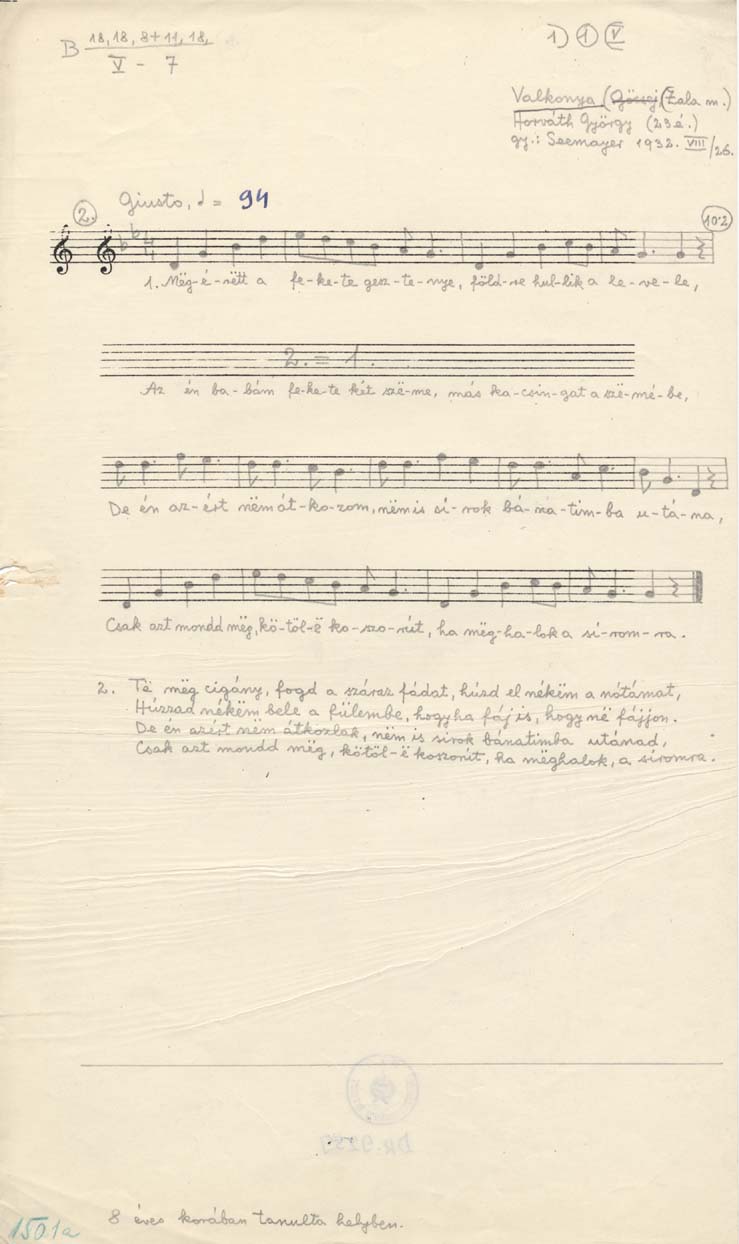 B 18, 18, 8+11, 18,
V - 7
1) 1 V
Valkonya (Göcsej, Zala m.)
Horváth György (23 é.)
gy.: Seemayer 1932. VIII/26.
2. Giusto, ♩ = 94
10·2
1. Mëg-é-rëtt a fe-ke-te gesz-te-nye, föld-re hul-lik a le-ve-le,
2. = 1.
Az én ba-bám fe-ke-te két szë-me, más ka-csin-gat a szë-mé-be,
De én az-ért nëm át-ko-zom, nëm is sí-rok bá-na-tim-ba u-tá-na,
Csak azt mondd mëg, kö-töl-ë ko-szo-rút, ha mëg-ha-lok a sí-rom-ra.
2. Të mëg cigány, fogd a száraz fádat, húzd el nékëm a nótámat,
Húzzad nékëm bele a fülembe, hogyha fáj is, hogy në fájjon.
De én azért nëm átkozlak, nëm is sírok bánatimba utánad,
Csak azt mondd mëg, kötöl-ë koszorút, ha mëghalok, a síromra.
8 éves korában tanulta helyben.
1501a